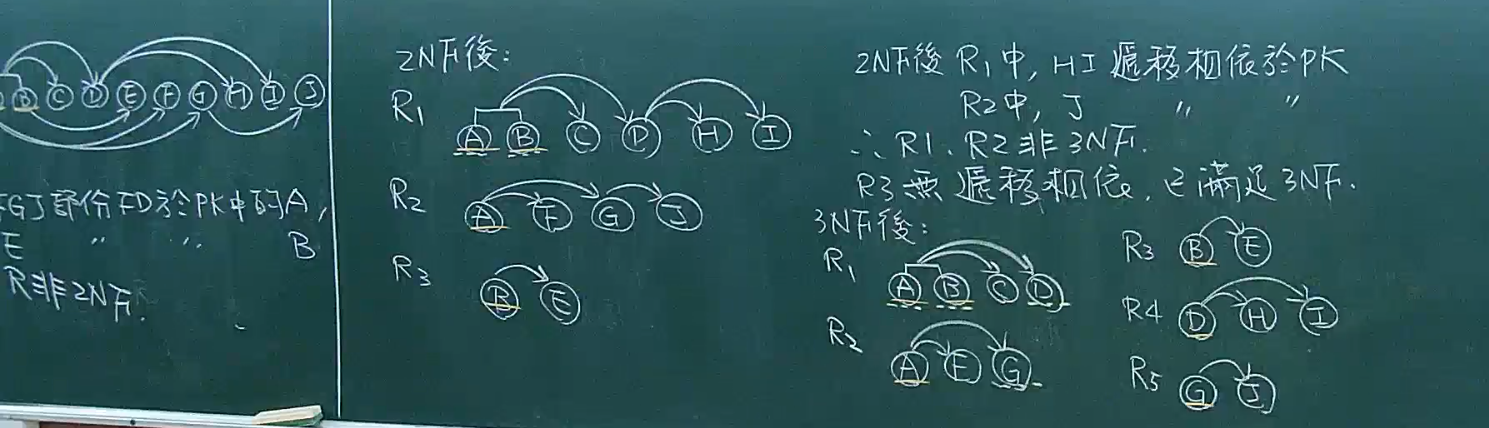 B C D E F G H I J
FGJ部份FD於PK中的A,
E " " B
R非2NF.
2NF後:
R1 A B C D H I
R2 A F G J
R3 B E
2NF後 R1中, HI 遞移相依於PK
R2中, J " "
∴ R1、R2非3NF.
R3無遞移相依, 已滿足3NF.
3NF後:
R1 A B C D
R2 A F G
R3 B E
R4 D H I
R5 G J